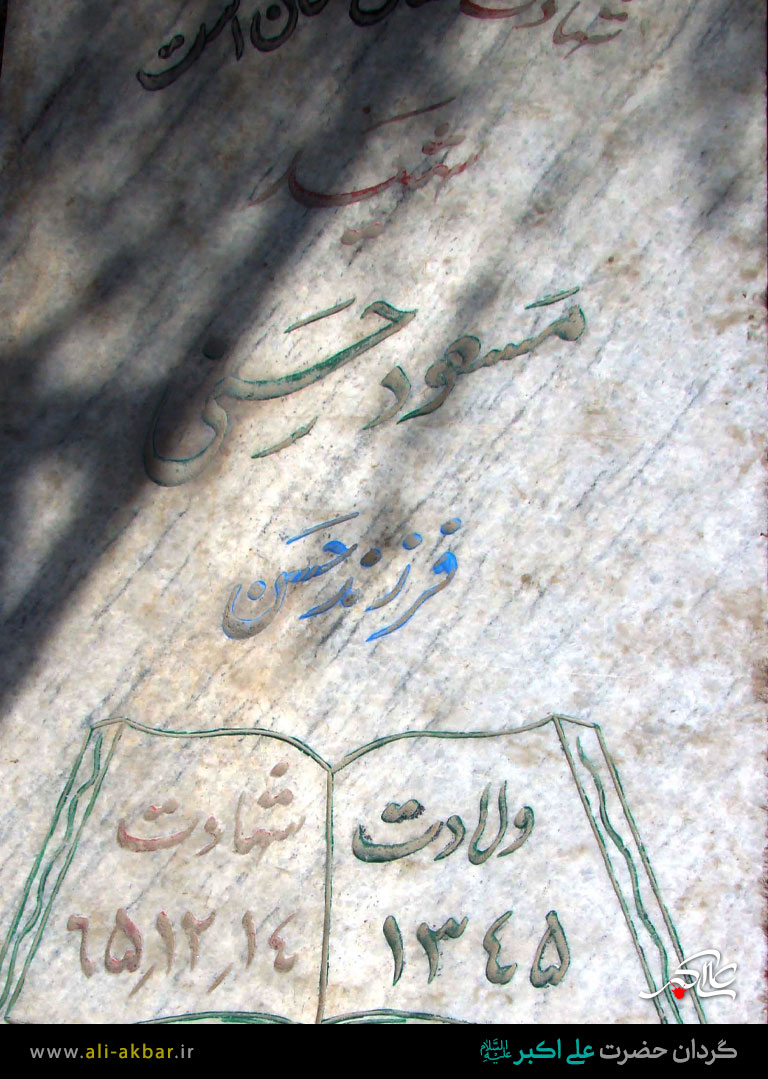 شهادت
است
شهید
مسعود حسنی
فرزند حسن
ولادت
۱۳٤۵
شهادت
٦۵٫۱۲٫۱٤
علی اکبر
گردان حضرت علی اکبر علیه السلام
www.ali-akbar.ir